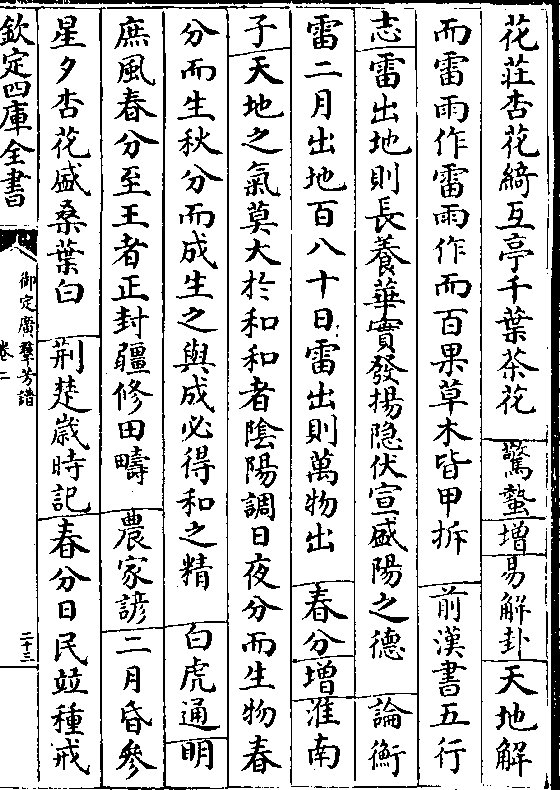 花莊杏花綺互亭千葉茶花　驚蟄增易解卦天地解
而雷雨作雷雨作而百果草木皆甲拆　前漢書五行
志雷出地則長養華實發揚隐伏宣盛陽之德　論衡
雷二月出地百八十日雷出則萬物出　春分增淮南
子天地之氣莫大於和和者隂陽調日夜分而生物春
分而生秋分而成生之與成必得和之精　白虎通明
庶風春分至王者正封疆修田疇　農家諺二月昏參
星夕杏花盛桑葉白　荆楚嵗時記春分日民並種戒
欽定四庫全書
御定廣羣芳譜
卷二
二十三